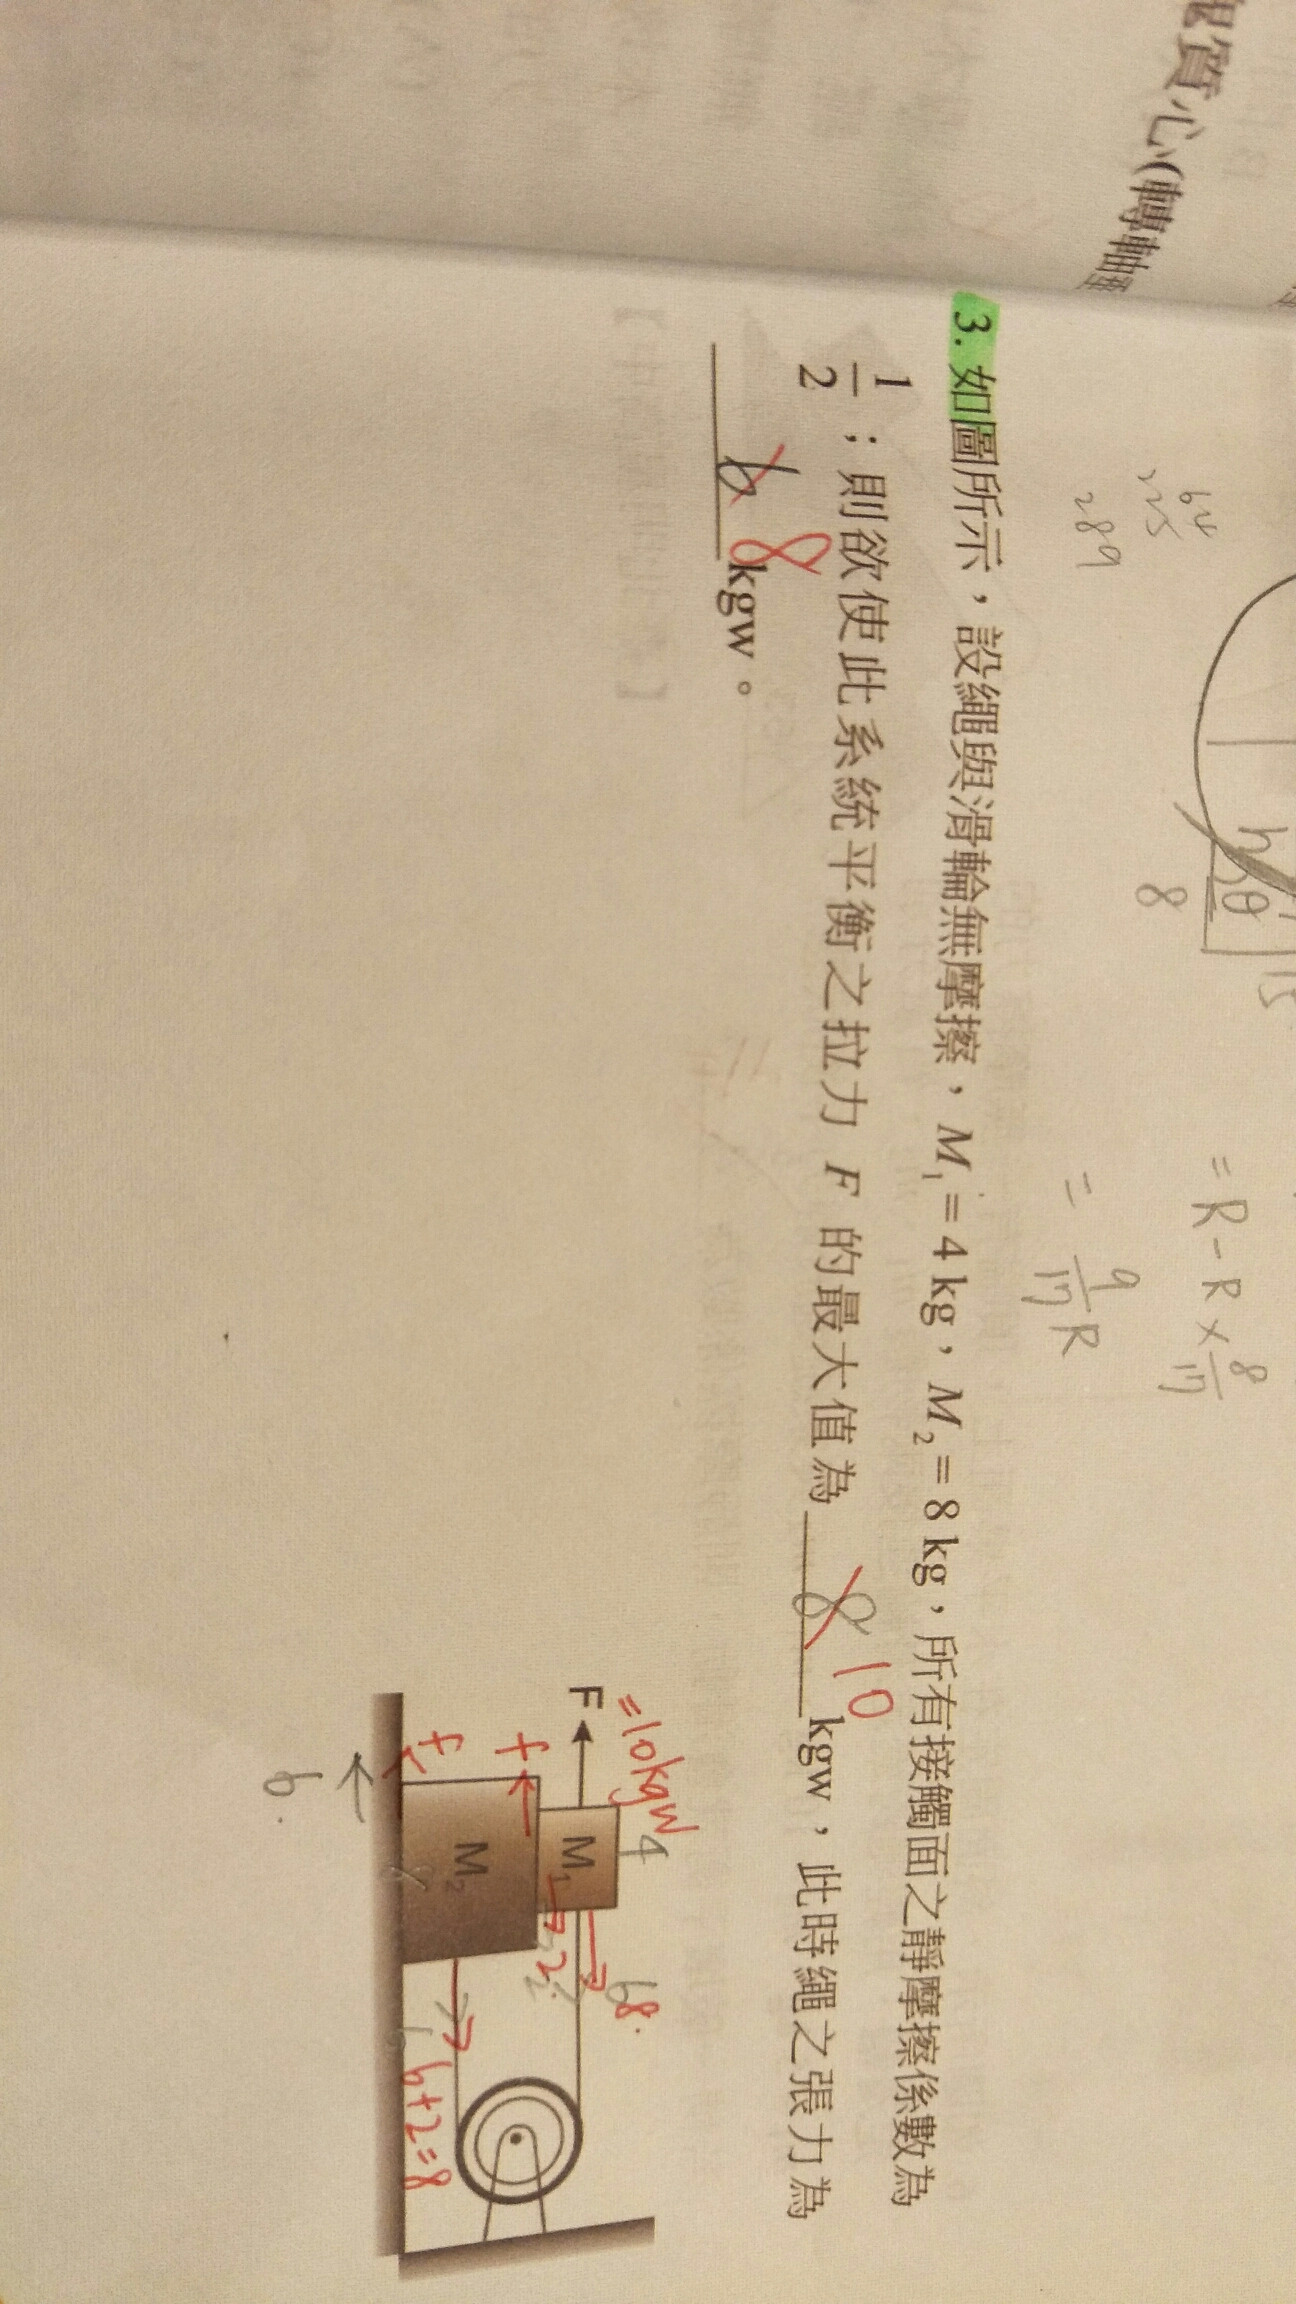 很質心(轉軸
64
225
289
h
θ
15
8
= R - R × 8/17
= 9/17 R
3. 如圖所示，設繩與滑輪無摩擦，M₁＝4 kg，M₂＝8 kg，所有接觸面之靜摩擦係數為
1/2；則欲使此系統平衡之拉力 F 的最大值為 8 10 kgw，此時繩之張力為
6 8 kgw。
=10kgw
4
F
M₁
6 8.
2
f
M₂
8
f
6
6+2=8
6.